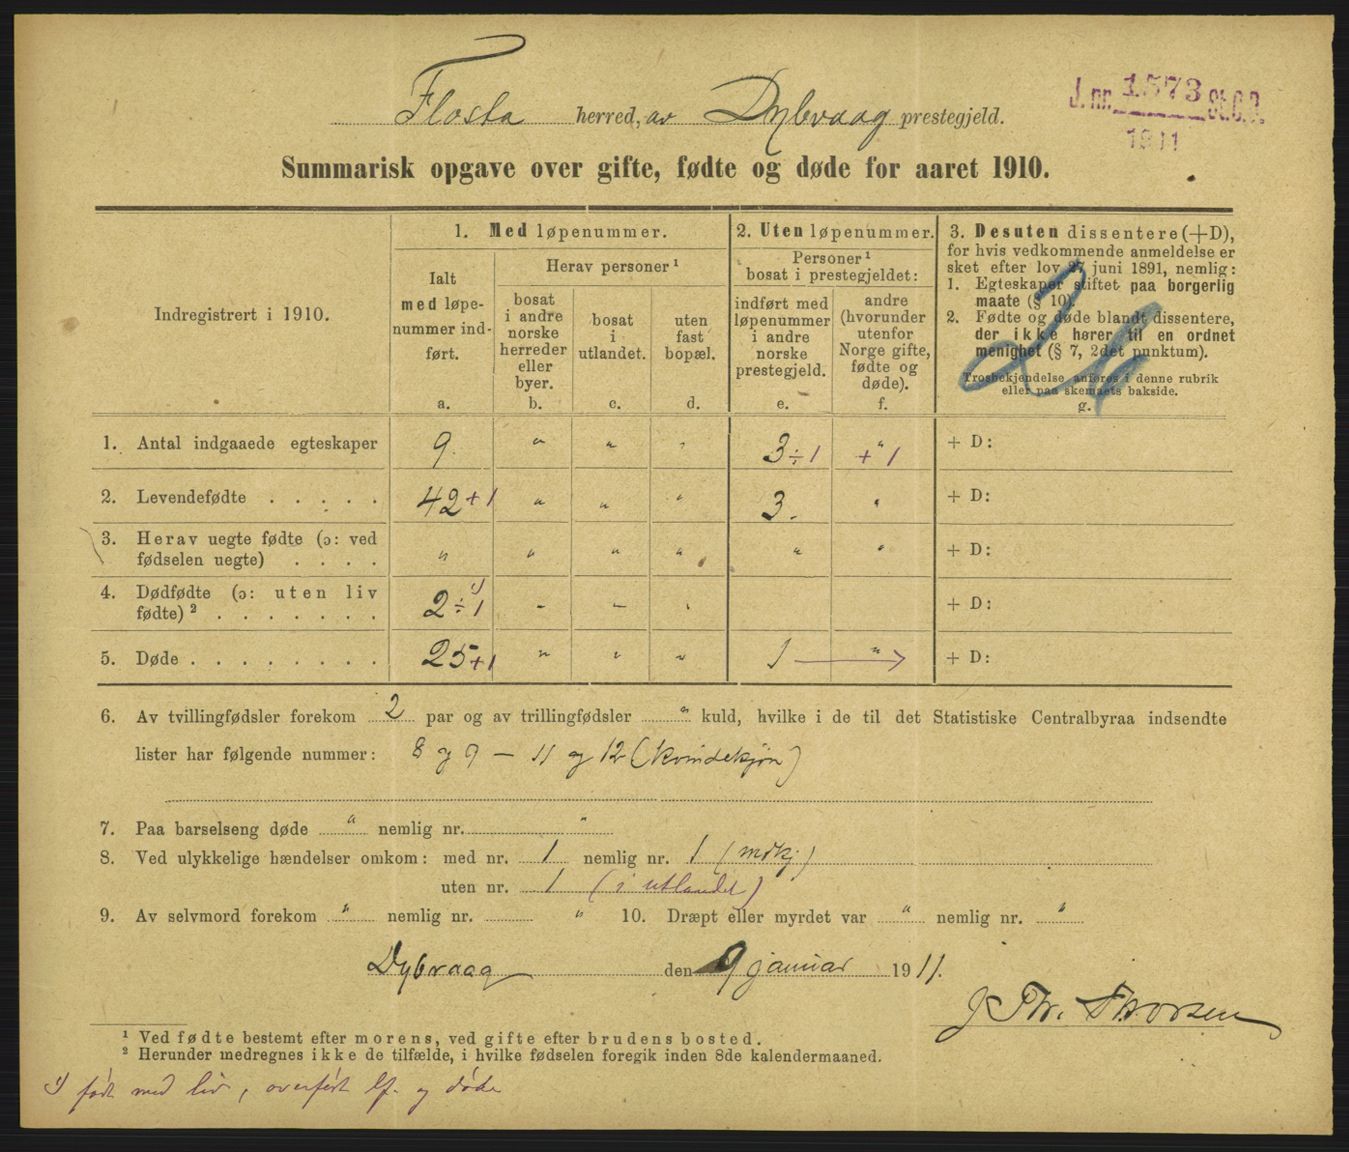 J. nr. 1573 St.C.B.
1911
Flosta herred, av Dybvaag prestegjeld.
Summarisk opgave over gifte, fødte og døde for aaret 1910.
Indregistrert i 1910.
1. Med løpenummer.
Ialt
med løpe-
nummer ind-
ført.
a.
Herav personer ¹
bosat
i andre
norske
herreder
eller
byer.
b.
bosat
i
utlandet.
c.
uten
fast
bopæl.
d.
2. Uten løpenummer.
Personer ¹
bosat i prestegjeldet:
indført med
løpenummer
i andre
norske
prestegjeld.
e.
andre
(hvorunder
utenfor
Norge gifte,
fødte og
døde).
f.
3. Desuten dissentere (+D),
for hvis vedkommende anmeldelse er
sket efter lov 27 juni 1891, nemlig:
1. Egteskaper stiftet paa borgerlig
maate (§ 10).
2. Fødte og døde blandt dissentere,
der ikke hører til en ordnet
menighet (§ 7, 2det punktum).
Trosbekjendelse anføres i denne rubrik
eller paa skemaets bakside.
g.
1. Antal indgaaede egteskaper 9. " " " 3 ÷ 1 " + 1 + D:
2. Levendefødte . . . . . 42 + 1 " " " 3. " + D:
3. Herav uegte fødte (ɔ: ved
fødselen uegte) . . . . " " " " " " + D:
4. Dødfødte (ɔ: uten liv
fødte) ² . . . . . . . 2 ÷ 1 ¹) " – " + D:
5. Døde . . . . . . . . 25 + 1 " " " 1 → " + D:
6. Av tvillingfødsler forekom 2 par og av trillingfødsler " kuld, hvilke i de til det Statistiske Centralbyraa indsendte
lister har følgende nummer: 8 og 9 — 11 og 12 (kvindekjøn)
7. Paa barselseng døde " nemlig nr. "
8. Ved ulykkelige hændelser omkom: med nr. 1 nemlig nr. 1 (mdkj)
uten nr. 1 (i utlandet)
9. Av selvmord forekom " nemlig nr. " 10. Dræpt eller myrdet var " nemlig nr. "
Dybvaag den 9 januar 1911.
J Thr. Thorsen
¹ Ved fødte bestemt efter morens, ved gifte efter brudens bosted.
² Herunder medregnes ikke de tilfælde, i hvilke fødselen foregik inden 8de kalendermaaned.
¹) født med liv, overført lf. og døde